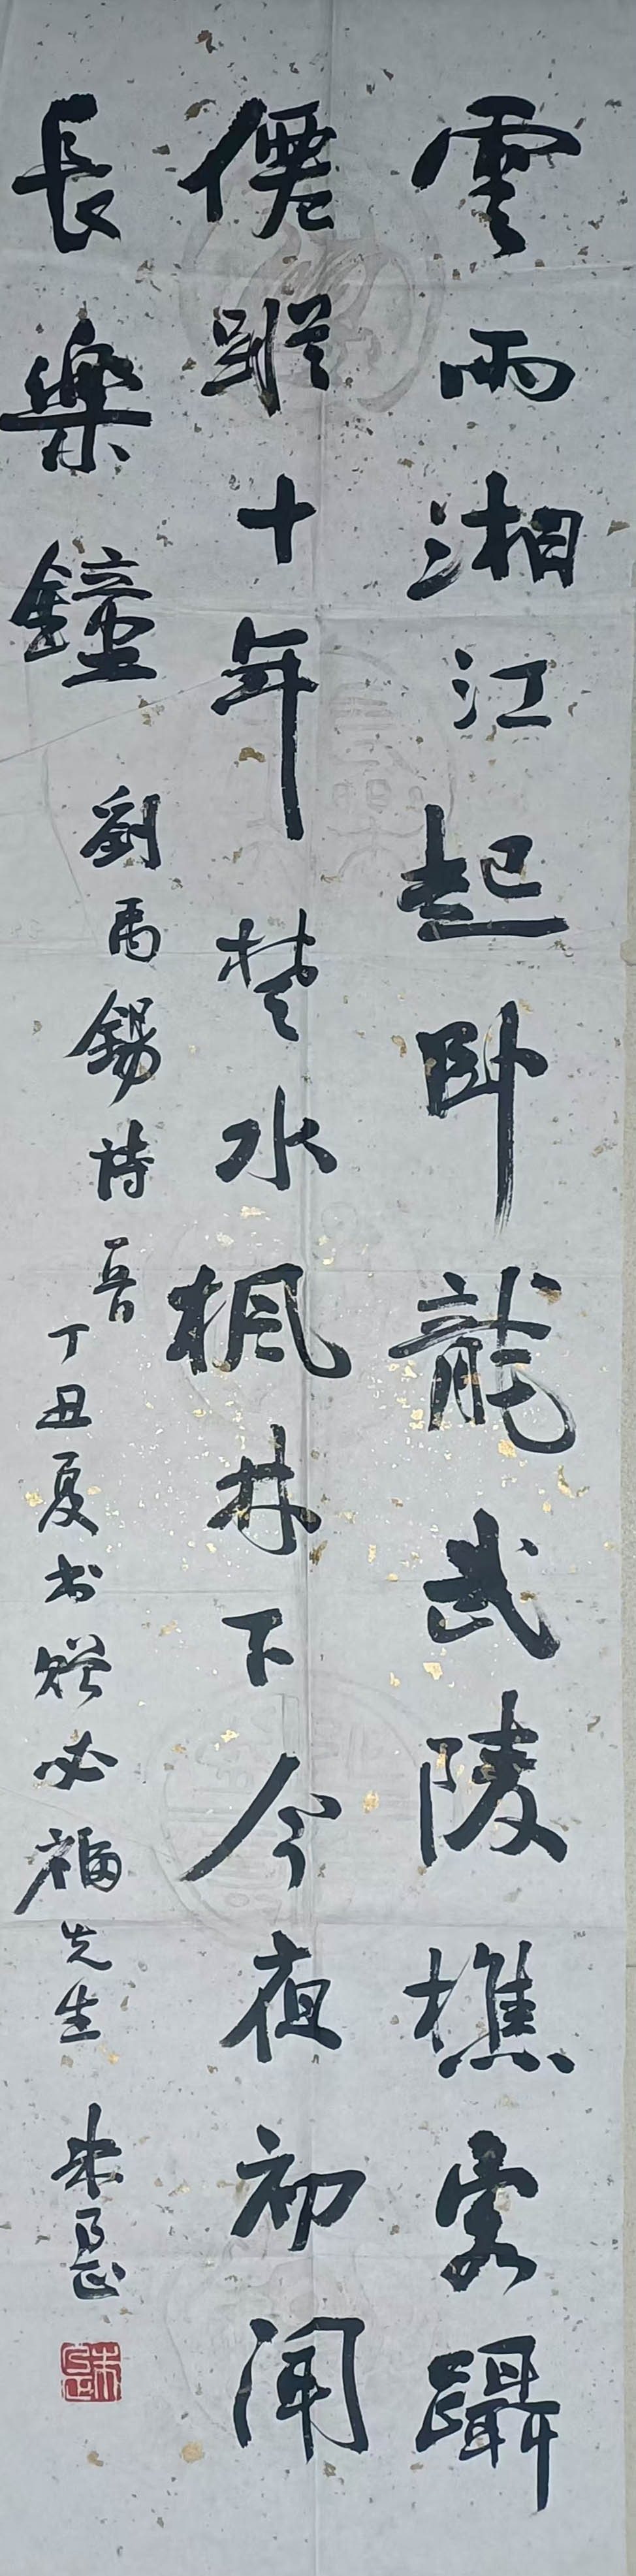 雲雨湘江起卧龍武陵樵客躡
僊蹤十年楚水楓林下今夜初聞
長樂鐘
劉禹錫詩一首
丁丑夏书赠必福先生 朱